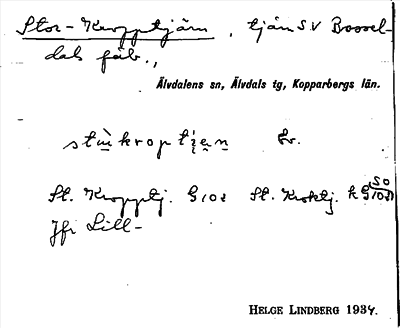 Stor-Kropptjärn, tjärn S.V Boosel-
dals fäb.,
Älvdalens sn, Älvdals tg, Kopparbergs län.
stu̱kroptje̱n
St. Kropptj. G 102 St. Kroktj. k G 102 SO
Jfr Lill-
HELGE LINDBERG 1934.